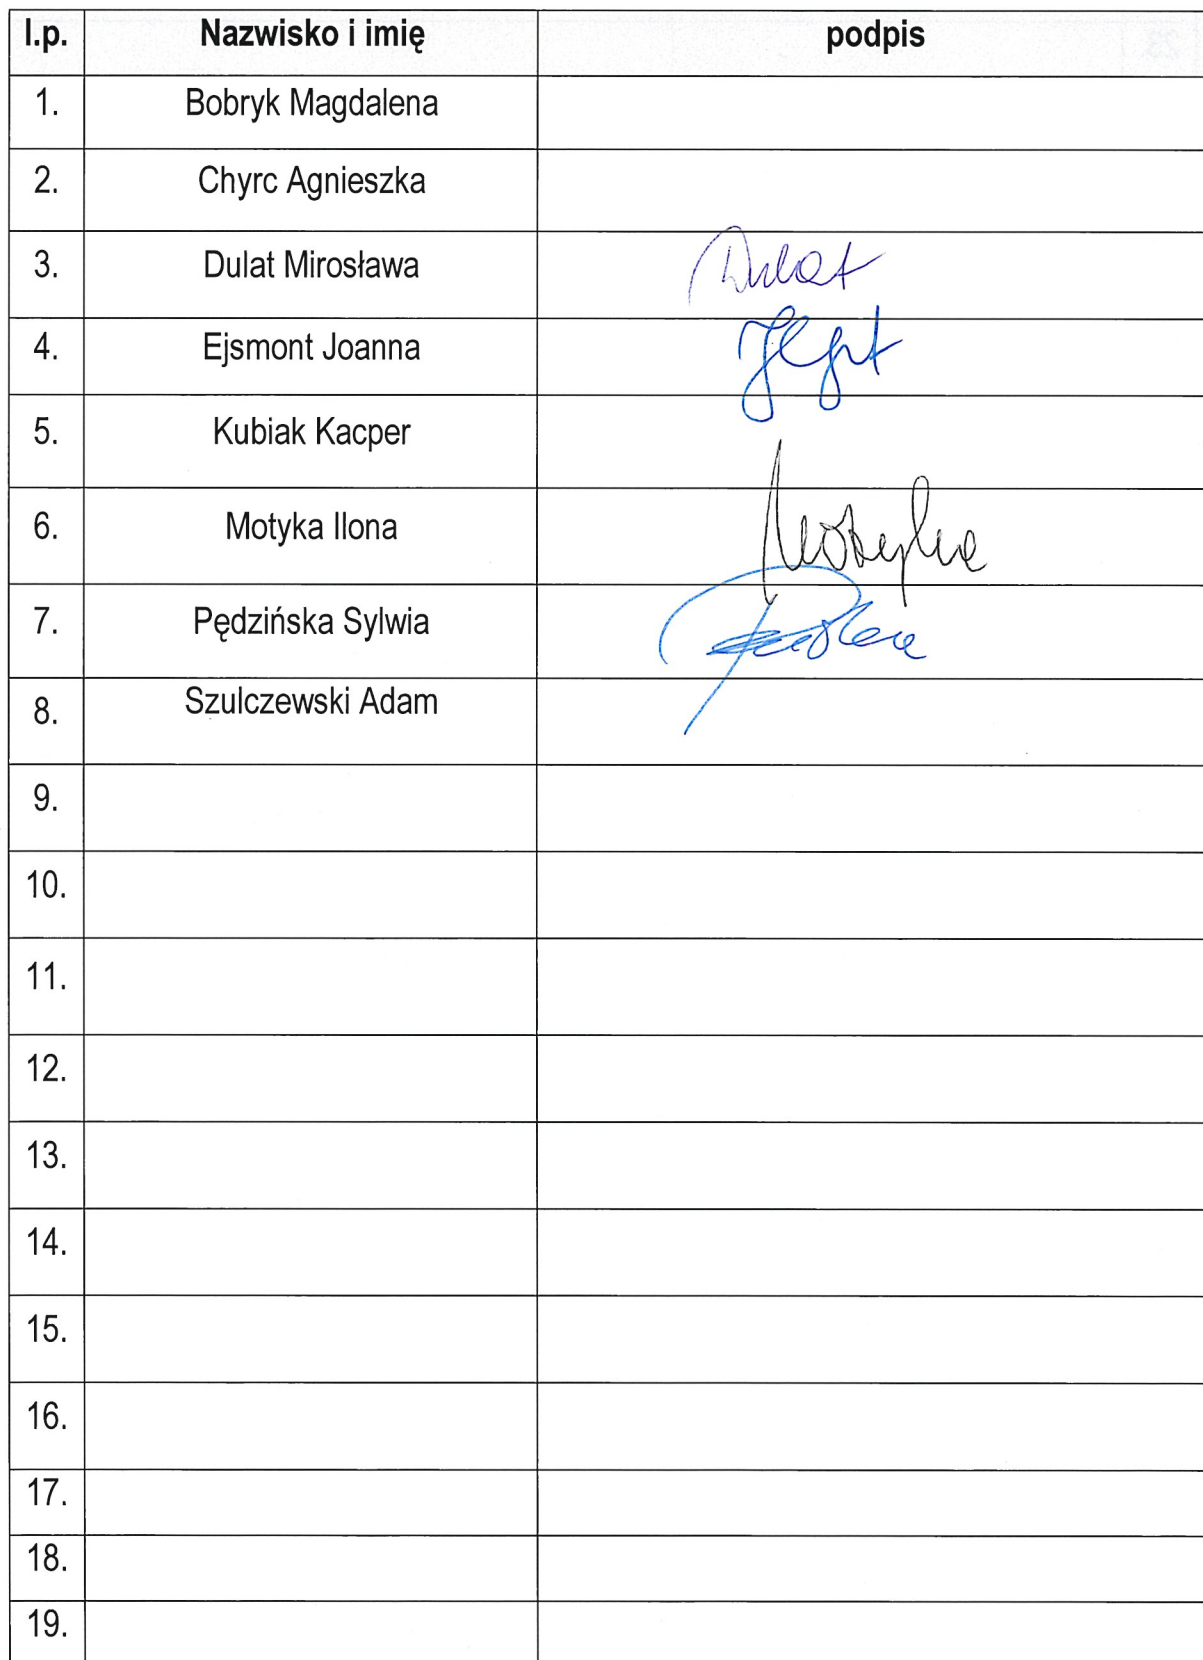 l.p. Nazwisko i imię podpis
1. Bobryk Magdalena
2. Chyrc Agnieszka
3. Dulat Mirosława Dulat
4. Ejsmont Joanna
5. Kubiak Kacper
6. Motyka Ilona Motyka
7. Pędzińska Sylwia
8. Szulczewski Adam
9.
10.
11.
12.
13.
14.
15.
16.
17.
18.
19.